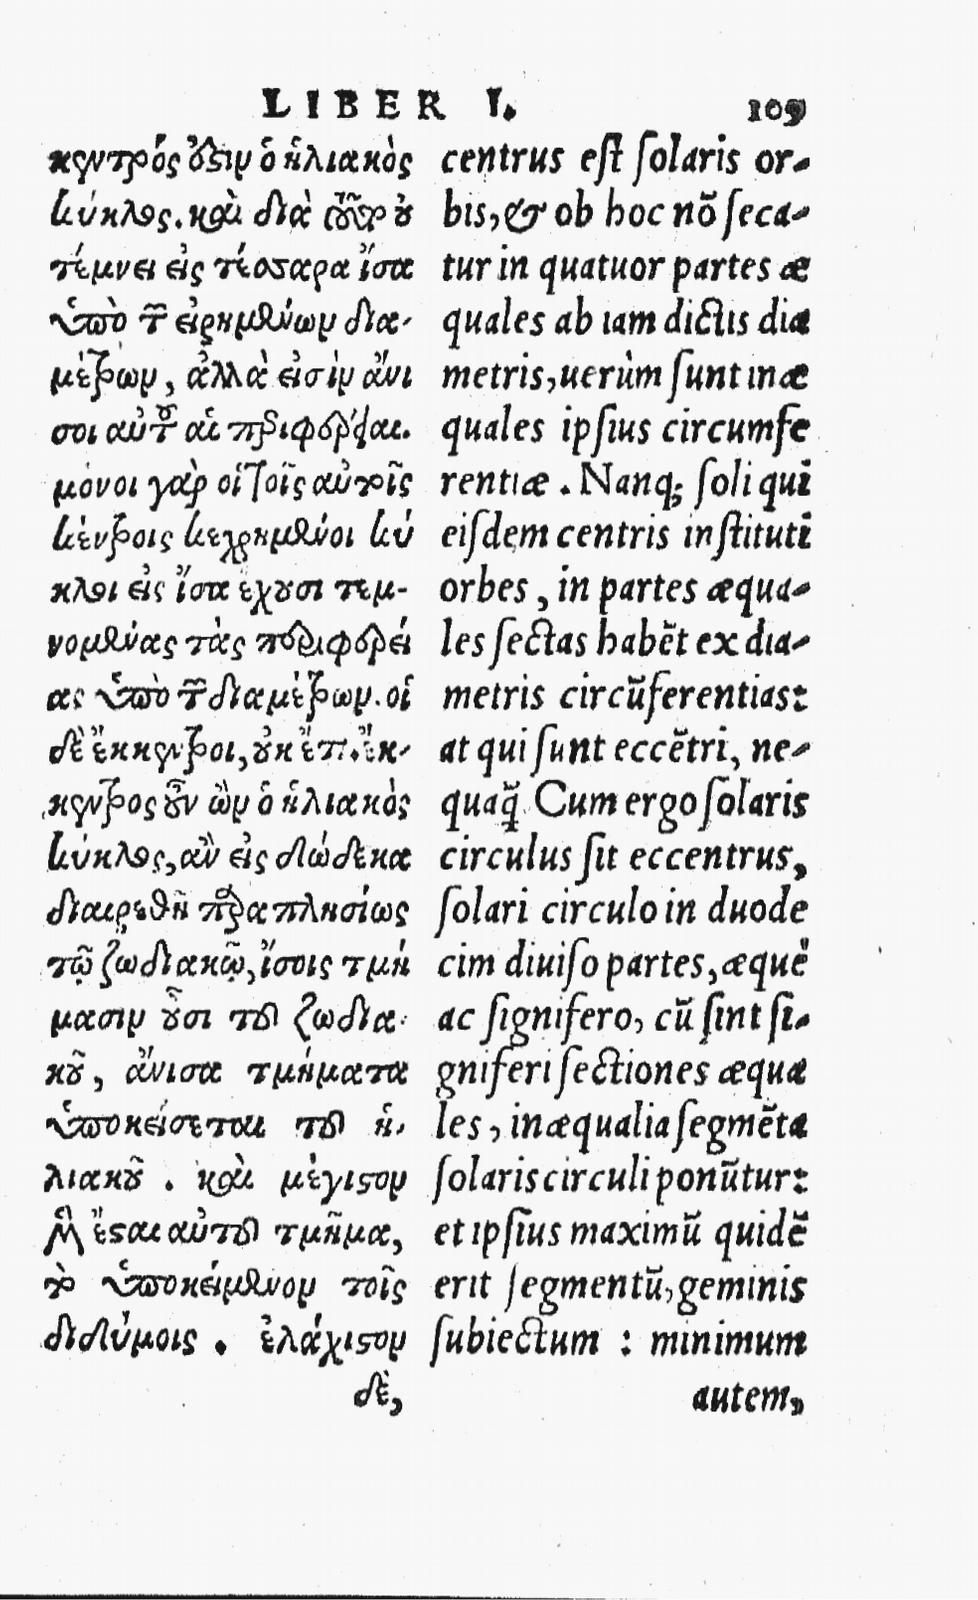 LIBER I. 109
κεντρός ἐστιν ὁ ἡλιακὸς
κύκλος. καὶ διὰ τοῦτο οὐ
τέμνει εἰς τέσσαρα ἴσα
ὑπὸ τῶν εἰρημένων δια-
μέτρων, ἀλλὰ εἰσὶν ἄνι
σοι αὐτοῦ αἱ περιφέρειαι.
μόνοι γὰρ οἱ τοῖς αὐτοῖς
κέντροις κεχρημένοι κύ
κλοι εἰς ἴσα ἔχουσι τεμ-
νομένας τὰς περιφερεί
ας ὑπὸ τῶν διαμέτρων. οἱ
δὲ ἔκκεντροι, οὐκ ἔτι. ἔκ-
κεντρος οὖν ὢν ὁ ἡλιακὸς
κύκλος, ἂν εἰς δώδεκα
διαιρεθῇ παραπλησίως
τῷ ζωδιακῷ, ἴσοις τμή
μασιν οὖσι τοῦ ζωδια-
κοῦ, ἄνισα τμήματα
ὑποκείσεται τοῦ ἡ-
λιακοῦ. καὶ μέγιστον
μὲν ἔσται αὐτοῦ τμῆμα,
τὸ ὑποκείμενον τοῖς
διδύμοις. ἐλάχιστον
δὲ,
centrus est ſolaris or-
bis, & ob hoc nõ ſeca-
tur in quatuor partes æ
quales ab iam dictis dia
metris, uerùm ſunt inæ
quales ipſius circumfe
rentiæ. Nanq; ſoli qui
eiſdem centris inſtituti
orbes, in partes æqua-
les ſectas habẽt ex dia-
metris circũferentias:
at qui ſunt eccẽtri, ne-
quaq̃. Cum ergo ſolaris
circulus ſit eccentrus,
ſolari circulo in duode
cim diuiſo partes, æquè
ac ſignifero, cũ ſint ſi-
gniferi ſectiones æqua
les, inæqualia ſegmẽta
ſolaris circuli ponũtur:
et ipſius maximũ quidẽ
erit ſegmentũ, geminis
ſubiectum : minimum
autem,